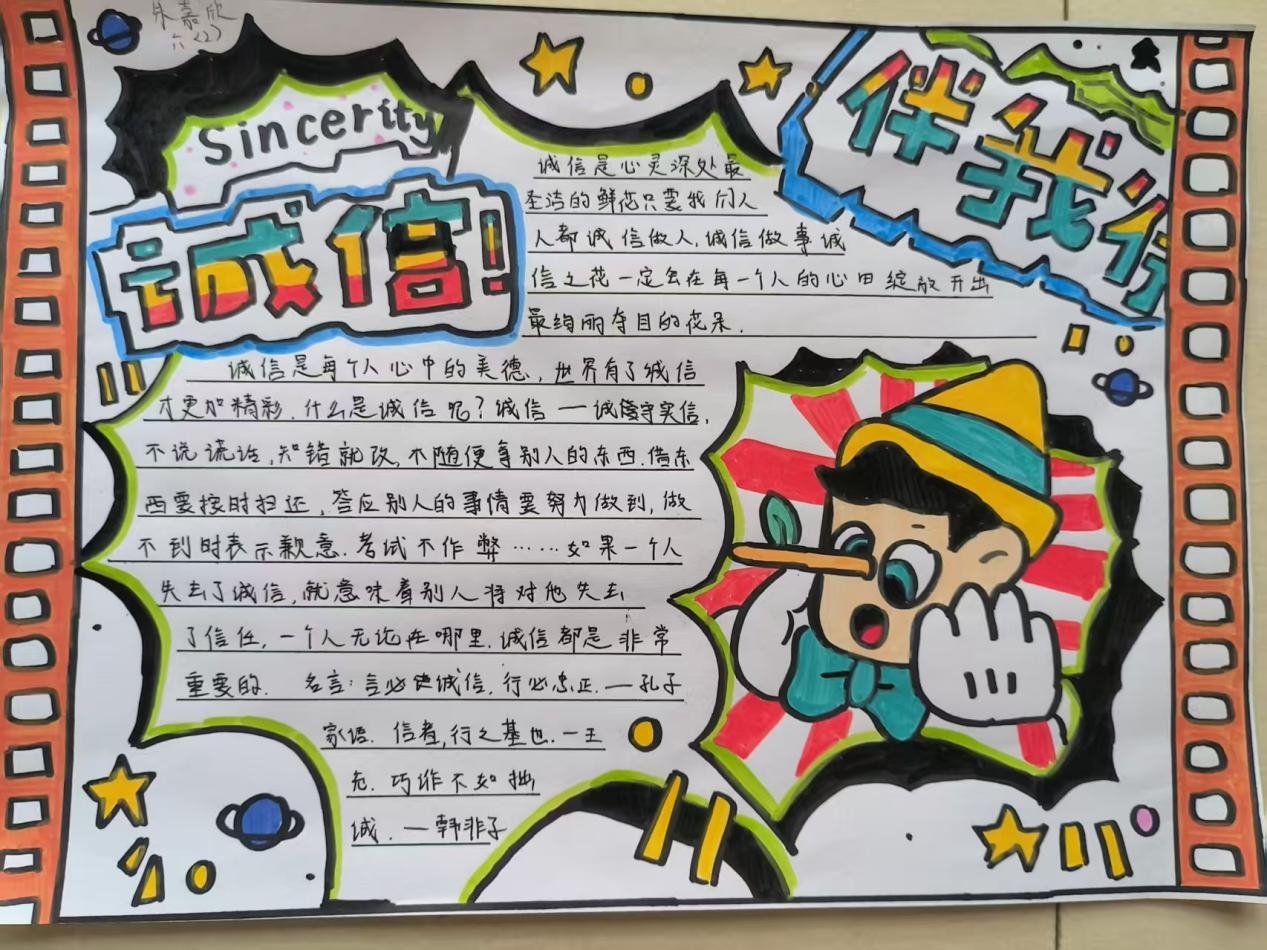 朱嘉欣
六(2)
Sincerity
诚信!
伴我行
诚信是心灵深处最
圣洁的鲜花只要我们人
人都诚信做人,诚信做事诚
信之花一定会在每一个人的心田绽放开出
最绚丽夺目的花朵.
诚信是每个人心中的美德,世界有了诚信
才更加精彩.什么是诚信呢?诚信一诚守实信,
不说谎话,知错就改,不随便拿别人的东西.借东
西要按时归还,答应别人的事情要努力做到,做
不到时表示歉意.考试不作弊……如果一个人
失去了诚信,就意味着别人将对他失去
了信任,一个人无论在哪里.诚信都是非常
重要的. 名言:言必诚信,行必忠正.一孔子
家语. 信者,行之基也.一王
充. 巧诈不如拙
诚.一韩非子